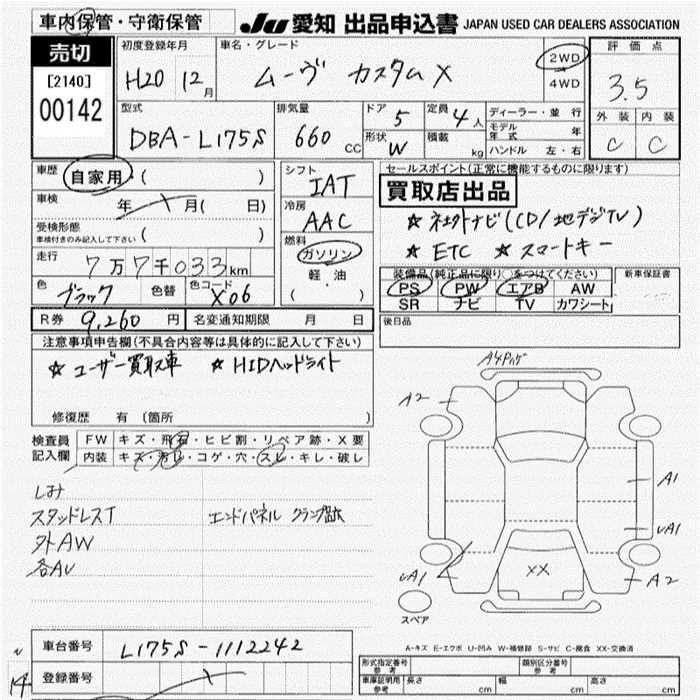 車内保管・守衛保管
JU 愛知 出品申込書 JAPAN USED CAR DEALERS ASSOCIATION
売切
[2140]
00142
初度登録年月
H20 12月
車名・グレード
ムーヴ カスタム X
2WD
4WD
評価点
3.5
外装 内装
C C
型式
DBA-L175S
排気量
660 CC
ドア 5
形状 W
定員 4人
積載 kg
ディーラー・並行
モデル年式 年
ハンドル 左・右
車歴 自家用・( )
車検 年 月( 日)
受検形態
車検付きのみ記入して下さい ( )
走行 7万7千033km
色 ブラック 色替 色コード X06
シフト
IAT
冷房
AAC
燃料
ガソリン
軽・油
( ・ )
セールスポイント(正常に機能するものに限ります)
買取店出品
☆ ネクストナビ(CD/地デジTV)
☆ ETC ☆ スマートキー
装備品(純正品に限り○をつけてください)
PS PW エアB AW
SR ナビ TV カワシート
新車保証書
後日品
R券 9,260 円 名変通知期限 月 日
注意事項申告欄(不具合内容等は具体的に記入して下さい)
☆ ユーザー買取車 ☆ HIDヘッドライト
修復歴 有 〔箇所 〕
検査員
記入欄
FW キズ・飛石・ヒビ割・リペア跡・X要
内装 キズ・汚レ・コゲ・穴・スレ・キレ・破レ
しみ
スタッドレスT エンドパネル クランプ跡
外AW
各AU
A4
A2
A1
UA1
UA1
A2
XX
スペア
A-キズ E-エクボ U-凹み W-補修跡 S-サビ C-腐食 XX-交換済
車台番号 L175S-1112242
登録番号
形式指定番号 参考
類別区分番号 参考
車庫証明用 参考 長さ cm 幅 cm 高さ cm